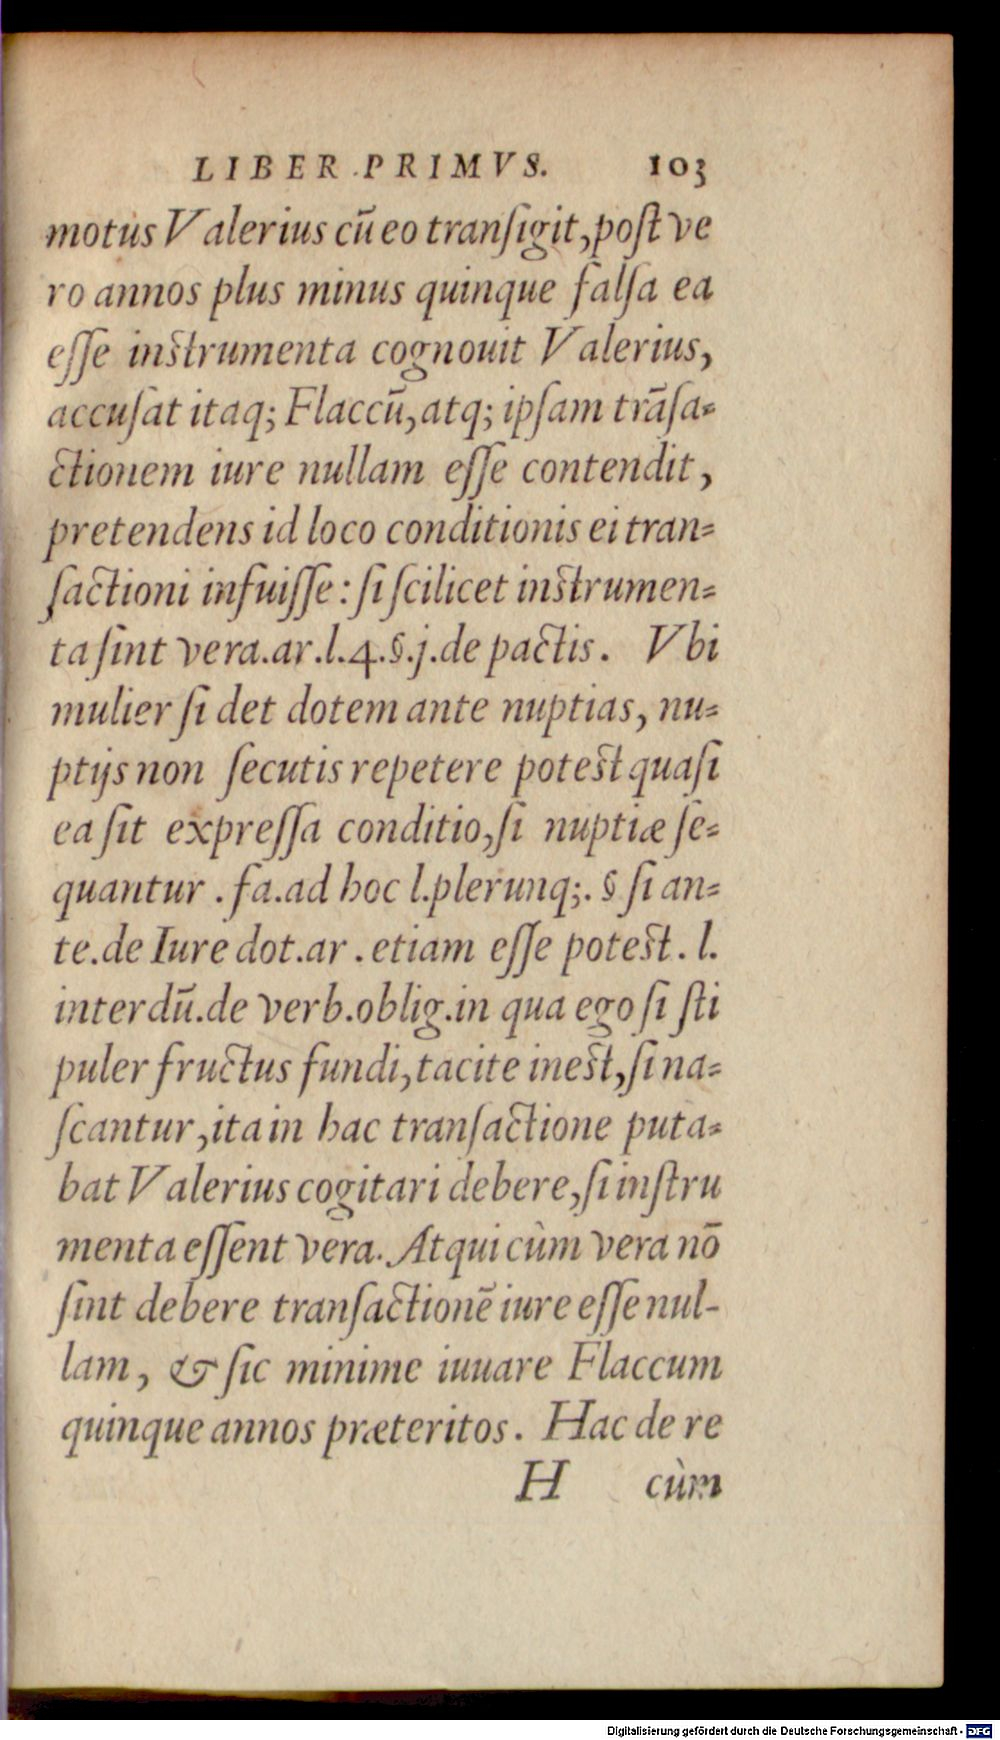 LIBER PRIMVS. 103
motus Valerius cū eo tranſigit, poſt ve
ro annos plus minus quinque falſa ea
eſſe inſtrumenta cognouit Valerius,
accuſat itaq; Flaccū, atq; ipſam trāſa-
ctionem iure nullam eſſe contendit,
pretendens id loco conditionis ei tran-
ſactioni infuiſſe: ſi ſcilicet inſtrumen-
ta ſint vera.ar.l.4.§.j.de pactis. Vbi
mulier ſi det dotem ante nuptias, nu-
ptijs non ſecutis repetere poteſt quaſi
ea ſit expreſſa conditio, ſi nuptiæ ſe-
quantur . fa.ad hoc l.plerunq;. § ſi an-
te.de Iure dot.ar . etiam eſſe poteſt. l.
interdū.de verb.oblig.in qua ego ſi ſti
puler fructus fundi, tacite ineſt, ſi na-
ſcantur, ita in hac tranſactione puta-
bat Valerius cogitari debere, ſi inſtru
menta eſſent vera. Atqui cùm vera nō
ſint debere tranſactionē iure eſſe nul-
lam, & ſic minime iuuare Flaccum
quinque annos præteritos. Hac de re
H cùm
Digitalisierung gefördert durch die Deutsche Forschungsgemeinschaft - DFG